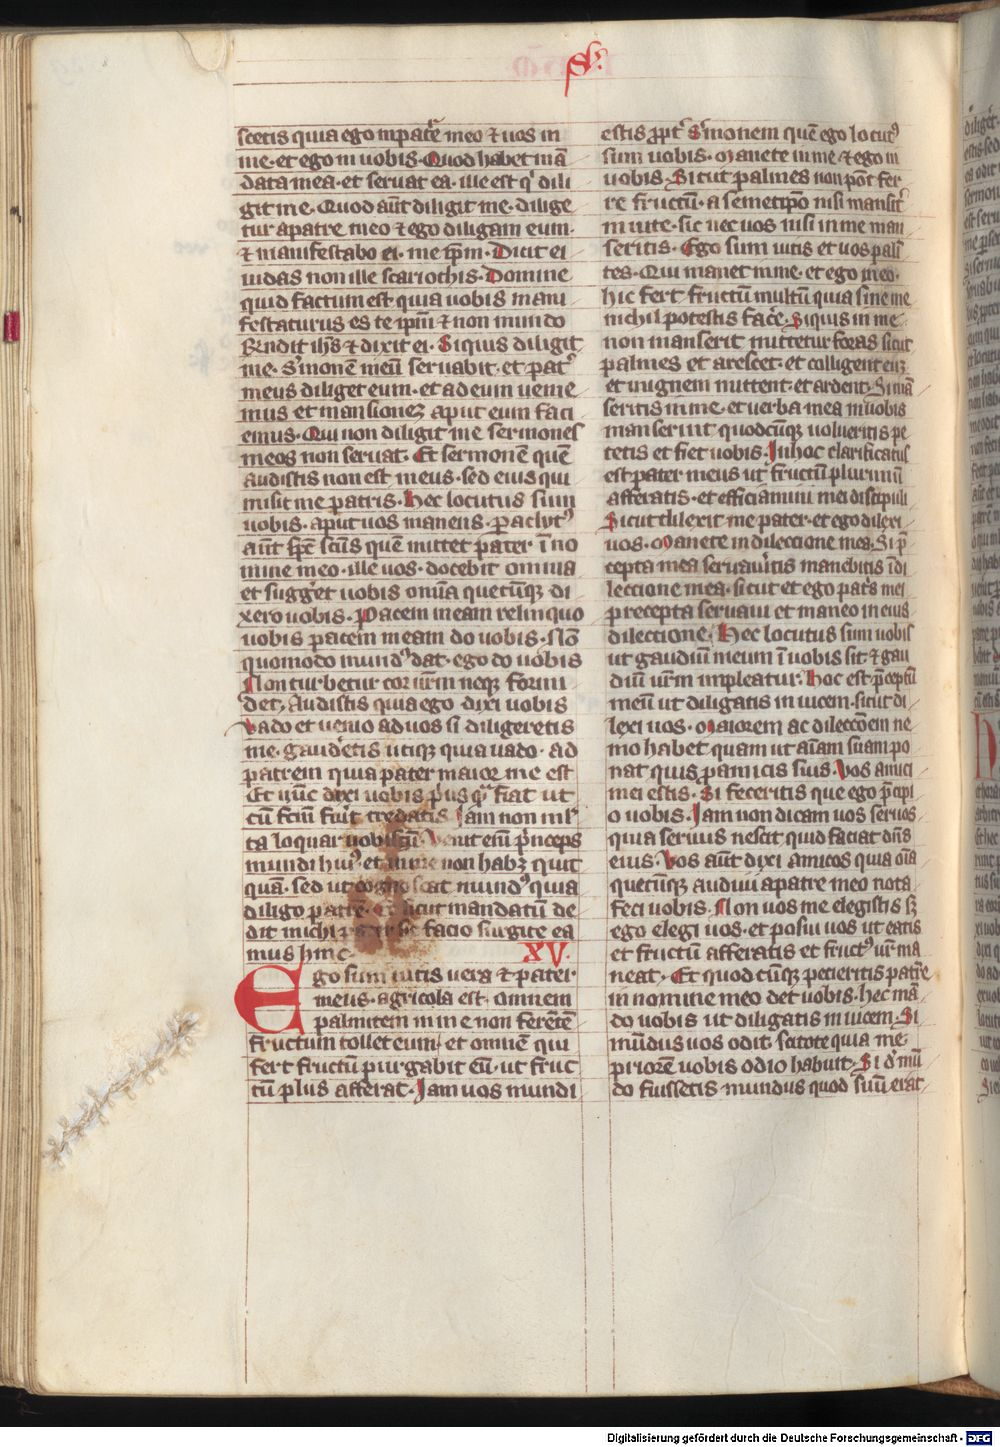 S(us)
scetis quia ego in pat̄re meo ⁊ uos in
me· et ego in uobis· Quod habet mā
data mea· et seruat ea· ille est qͥ dili
git me· Quod aūt diligit me· dilige
tur a patre meo ⁊ ego diligam eum·
⁊ manifestabo ei· me ip̄m· Dicit ei
iudas non ille scariothis· Domine
quid factum est quia uobis mani
festaturus es te ip̄m ⁊ non mundo
Rn̄dit ih̄s ⁊ dixit ei· Si quis diligit
me· S̓monē meū seruabit· et pat̓
meus diliget eum· et ad eum venie
mus et mansionez aput eum faci
emus· Qui non diligit me sermones
meos non seruat· Et sermonē quē
audistis non est meus· sed eius qui
misit me patris· Hec locutus sum
uobis· aput uos manens· paclytꝰ
aūt sp̄c sc̄us quē mittet pater ī no
mine meo· ille uos· docebit omnia
et sugg̓et uobis om̄ia quecūqꝫ di
xero uobis· Pacem meam relinquo
uobis pacem meam do uobis· Nō
quomodo mundꝰ dat· ego do uobis
Non turbetur cor ur̄m neqꝫ formi
det· Audistis quia ego dixi uobis
Vado et uenio ad uos si diligeretis
me· gaud̓etis utiqꝫ quia uado· ad
patrem quia pater maior me est
Et nūc dixi uobis pͥus qᷓ fiat ut
cū fc̄m fu̓it credatis Iam non ml̄
ta loquar uobiscū· Venit eni̅ pͥnceps
mundi huiꝰ et in me non habꝫ quit
quā· sed ut cognoscat mundꝰ quia
diligo patrē· Et sicut mandatū de
dit michi pater sic facio surgite ea
mus hinc XV·
Ego sum uitis uera ⁊ pater
meus· agricola est· omnem
palmitem in me non ferētē
fructum tollet eum· et omnē qui
fert fructū purgabit eū· ut fruc
tū plus afferat· Iam uos mundi
estis ꝓpt̓ s̓monem quē ego locutꝰ
sum uobis· Manete in me ⁊ ego in
uobis· Sicut palmes non pōt fer
re fructū· a semetip̄o nisi mansit̓
in uite· sic nec uos nisi in me man
seritis· Ego sum uitis et uos palī
tes· Qui manet in me· et ego in eo·
hic fert fructū multū quia sine me
nichil potestis fac̓e· Si quis in me
non manserit mittetur foras sicut
palmes et arescet· et colligent euꝫ
et in ignem mittent· et ardent· Si mā
seritis in me· et uerba mea in uobis
manserint quodcūqꝫ volueritis pe
tetis et fiet uobis· In hoc clarificatus
est pater meus ut fructū plurimū
afferatis· et efficiamini mei discipuli
Sicut dilexit me pater· et ego dilexi
uos· Manete in dileccione mea· Si p̄
cepta mea seruau̓itis manebitis ī di
leccione mea· sicut et ego pat̓s mei
precepta seruaui et maneo in eius
dileccione· Hec locutus sum uobis
ut gaudiū meum ī uobis sit· ⁊ gau
diū ur̄m impleatur· Hoc est p̄ceptū
meū ut diligatis in uicem· sicut di
lexi uos· Maiorem ac dilecc̄oem ne
mo habet quam ut aīam suam po
nat quis pro amicis suis· Vos amici
mei estis· Si feceritis que ego p̄cipi
o uobis· Iam non dicam uos seruos
quia seruus nescit quid faciat dn̄s
eius· Vos aūt dixi amicos quia om̄ia
quecūsqꝫ audiui a patre meo nota
feci uobis· Non uos me elegistis sꝫ
ego elegi uos· et posui uos ut eatis
et fructū afferatis et fructꝰ ur̄ ma
neat· Et quodcūqꝫ pecieritis pat̓re
in nomine meo det uobis· hec mā
do uobis ut diligatis in uicem· Si
mūdus uos odit· scitote quia me·
priorē uobis odio habuit· Si d̓ mū
do fuissetis· mundus quod suū erat
Digitalisierung gefördert durch die Deutsche Forschungsgemeinschaft - DFG